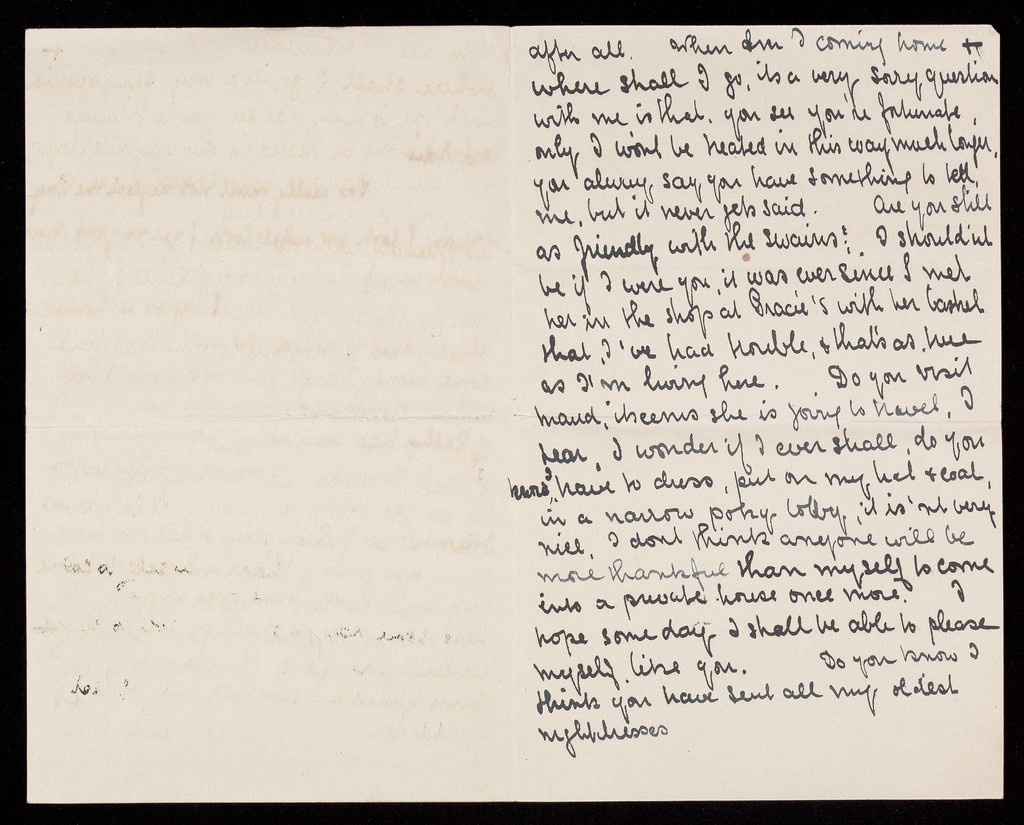 after all. When am I coming home &
where shall I go, its a very sorry question
with me is that, you see you're fortunate,
only I wont be treated in this way much longer,
you alway say you have something to tell
me, but it never gets said. Are you still
as friendly with the Swains? I should'nt
be if I were you, it was ever since I met
her in the shop at Gracie's with her basket
that, I've had trouble, & that's as true
as I'm living here. Do you visit
maud, it seems she is going to travel, I
hear, I wonder if I ever shall, do you
know? I have to dress, put on my hat & coat,
in a narrow poky lobby, it is'nt very
nice, I dont think anyone will be
more thankful than myself to come
into a private house once more. I
hope some day I shall be able to please
myself, like you. Do you know I
think you have sent all my oldest
nightdresses